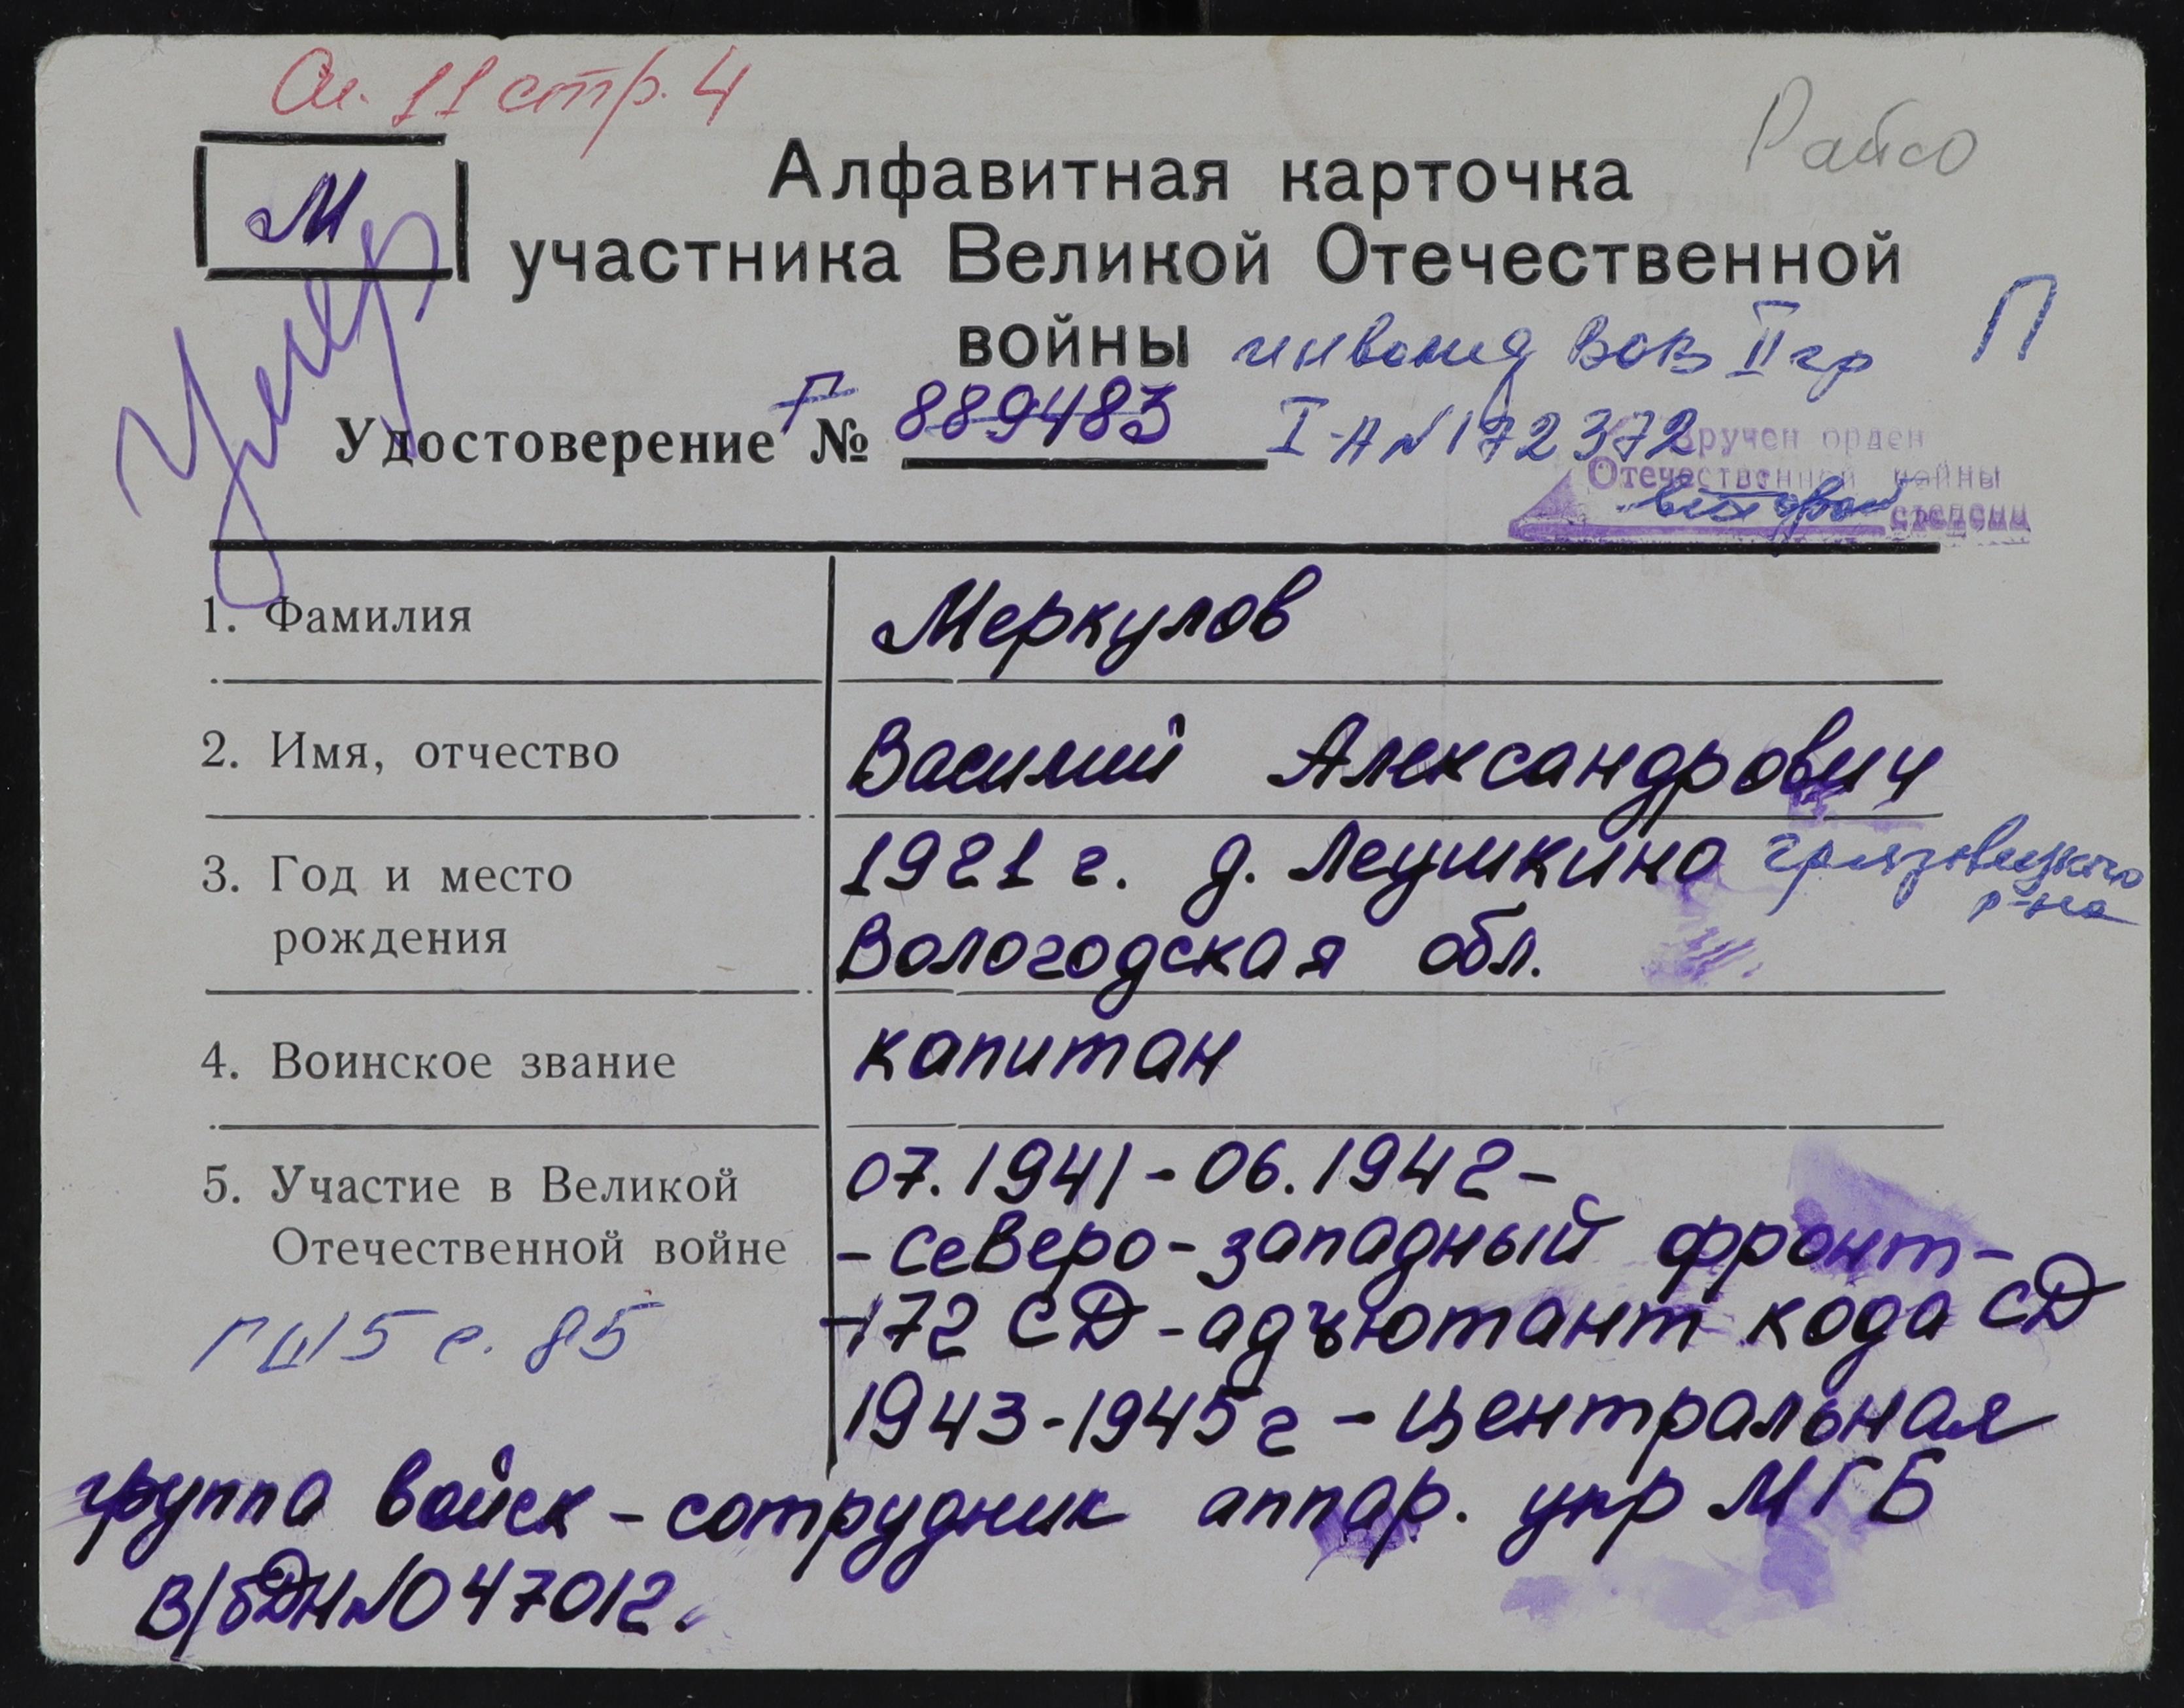 Ал. 11 стр. 4
Райсо
М
Умер
Алфавитная карточка
участника Великой Отечественной
войны инвалид ВОВ II гр П
Удостоверение Г № 889483 I-А № 172372
Вручен орден
Отечественной войны
второй степени
1. Фамилия Меркулов
2. Имя, отчество Василий Александрович
3. Год и место 1921 г. д. Леушкино Грязовецкого
р-на
рождения Вологодская обл.
4. Воинское звание капитан
5. Участие в Великой 07.1941-06.1942-
Отечественной войне -Северо-западный фронт-
-172 СД-адъютант кода СД
ГШ5 с. 85
1943-1945г - Центральная
группа войск - сотрудник аппар. упр МГБ
В/б ДН №047012.